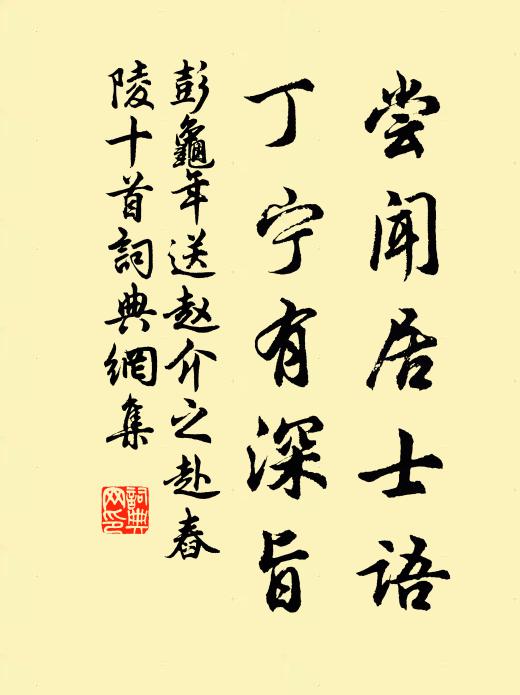 尝闻居士语
丁宁有深旨
彭龜年送赵介之赴舂
陵十首詞典網集
詞典
网印